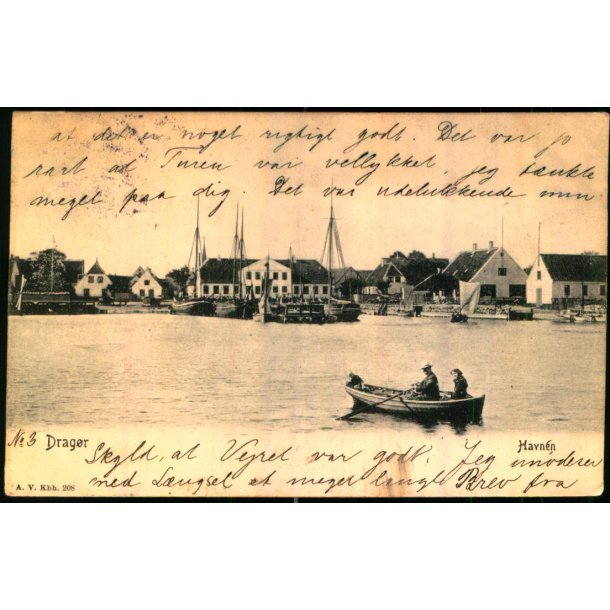 at det er noget rigtigt godt. Det var jo
rart at Turen var vellykket, jeg tænkte
meget paa dig. Det var udelukkende min
No 3 Dragør
Havnen
Skyld, at Vejret var godt. Jeg imødeser
med Længsel et meget langt Brev fra
A. V. Kbh. 208